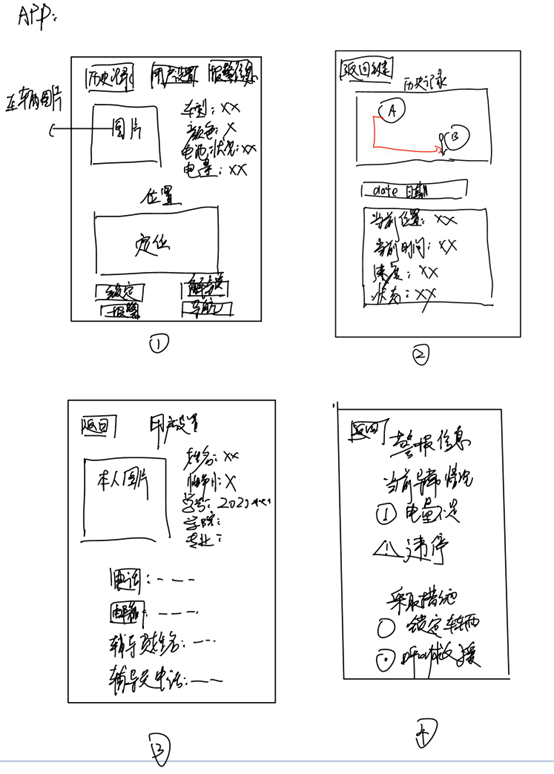 APP:
历史记录 用户设置 报警信息
车辆图片
图片
车型: XX
颜色: X
电池状况: XX
电量: XX
位置
定位
锁定 解锁
报警 导航
①
返回键
历史记录
A
B
date 日期
当前位置: XX
当前时间: XX
速度: XX
状态: XX
②
返回 用户设置
本人图片
姓名: XX
性别: X
学号: 2021
学院:
专业:
电话: ---
邮箱: ---
辅导员姓名: ---
辅导员电话: ---
③
返回
警报信息
当前异常情况
① 电量
! 违停
采取措施
锁定车辆
呼叫救援
④